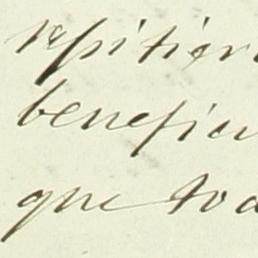 repitier
benefici
que toda